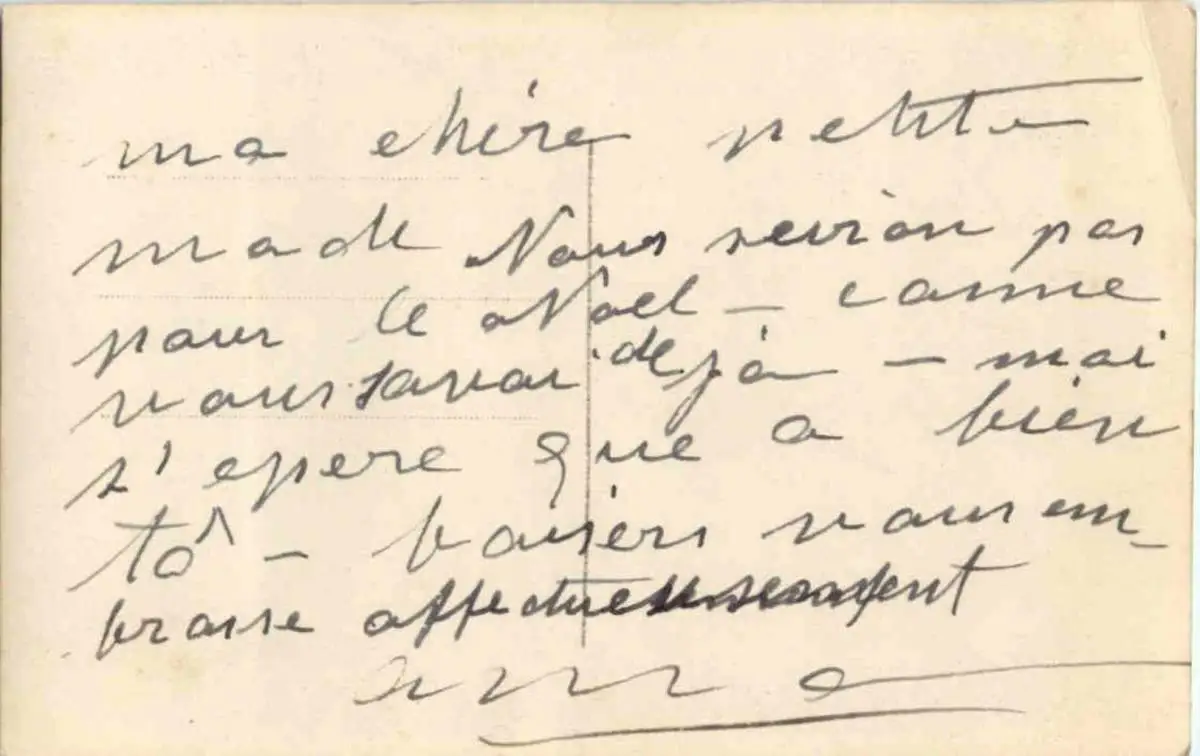 ma chère petite
made Nous revion pas
pour le Noël – comme
vous savai déjà – mai
s'epere que a bien
tô – baisers vous em_
brasse affectueusement
anna